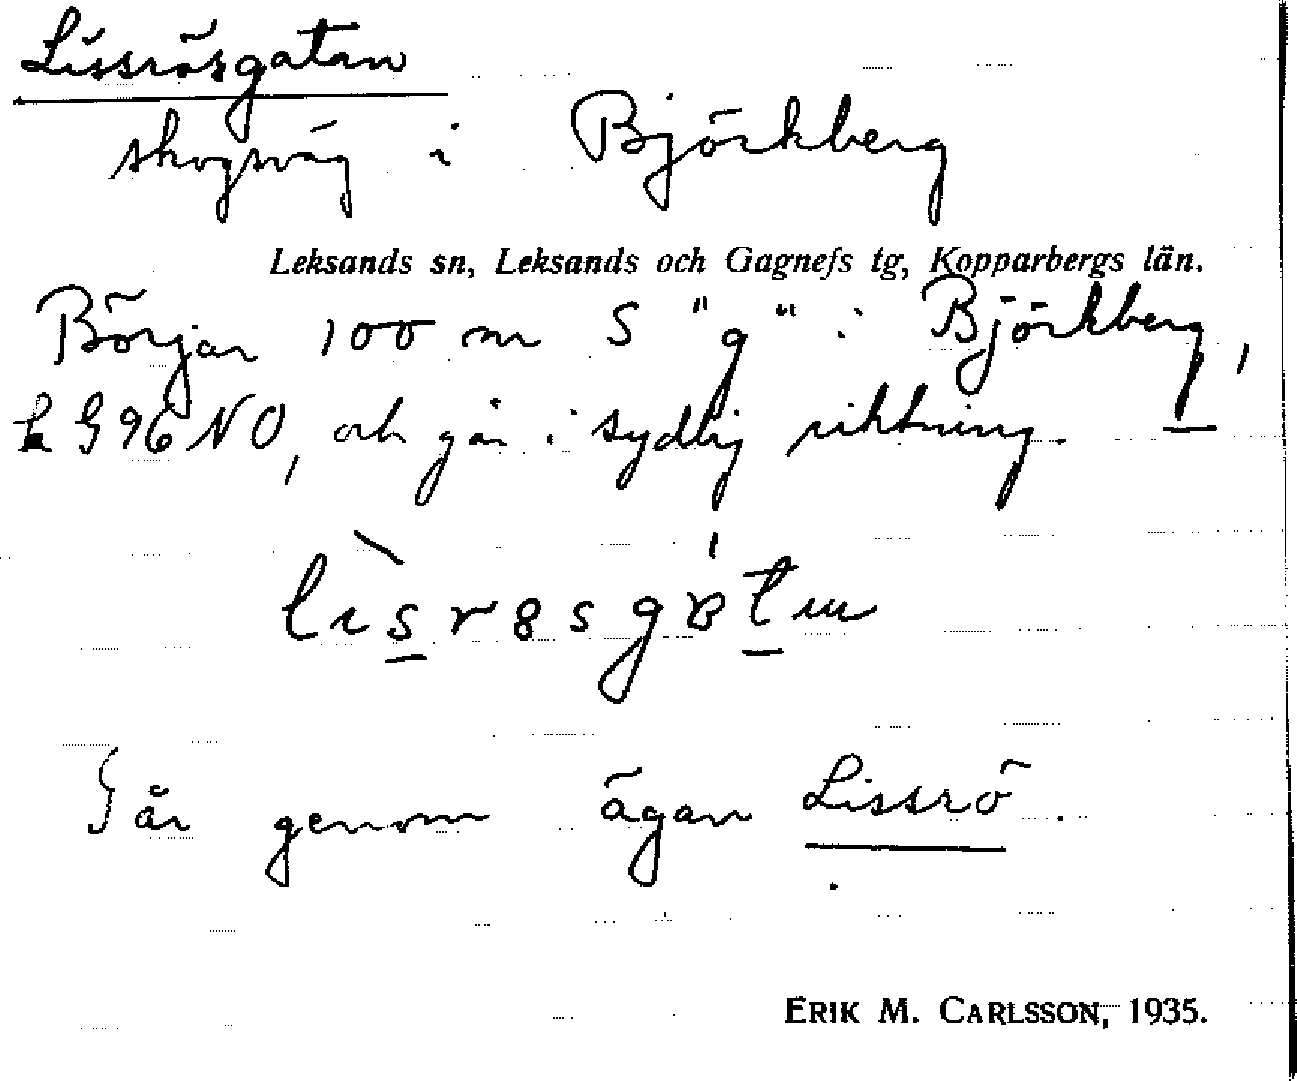 Lissrösgatan
skogsväg i Björkberg
Leksands sn, Leksands och Gagnefs tg, Kopparbergs län.
Börjar 100 m S "g" i Björkberg,
k G 96 NO, och går i sydlig riktning.
Går genom ägan Lissrö.
ERIK M. CARLSSON, 1935.